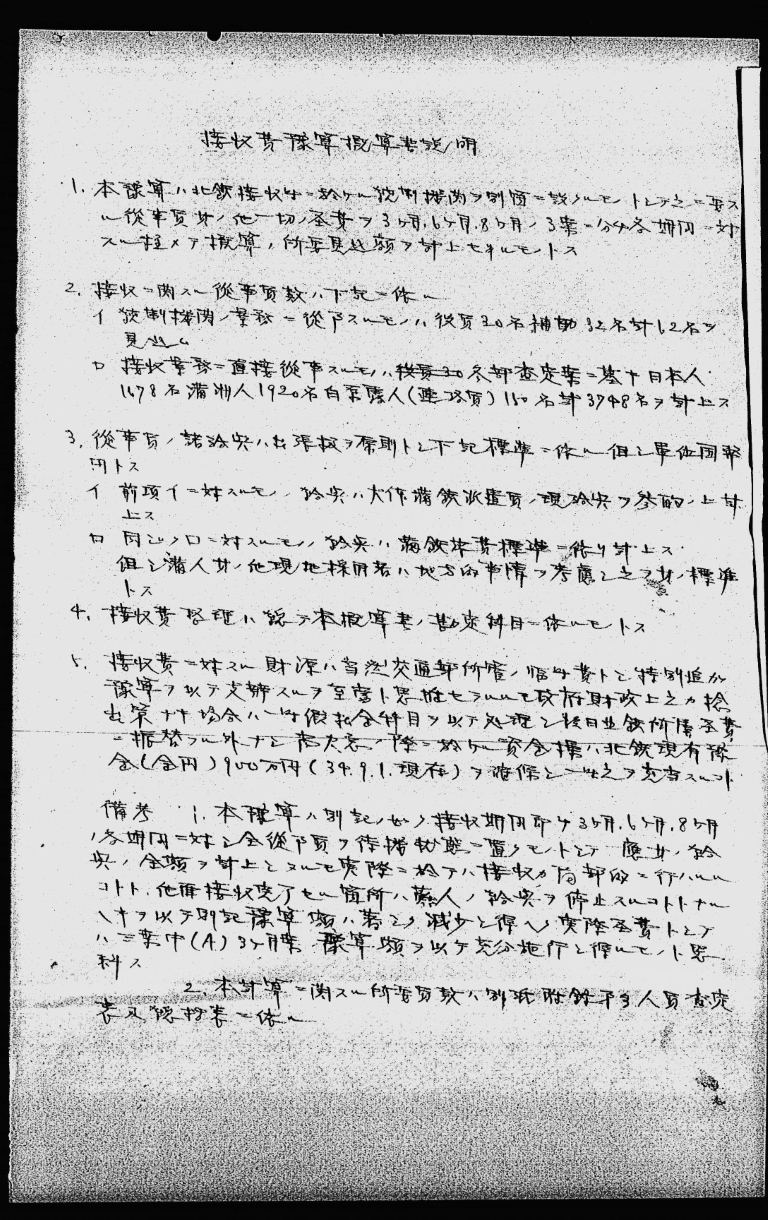 接收費豫算概算書説明
1. 本豫算ハ北鉄接收時ニ於ケル統制機関ヲ別個ニ設クルモノトシテ之ニ要ス
ル従事員其ノ他一切ノ経費ヲ3ヶ月、6ヶ月、8ヶ月ノ3案ニ分チ各期間ニ対
スル極メテ概算ノ所要見込額ヲ計上セルモノトス
2. 接收ニ関スル従事員数ハ下記ニ依ル
イ 統制機関ノ業務ニ従事スルモノハ役員30名補助32名計62名ヲ
見込ム
ロ 接收業務ニ直接従事スルモノハ各部査定案ニ基キ日本人
1678名満洲人1920名白系露人(連絡員)150名計3748名ヲ計上ス
3. 従事員ノ諸給与ハ出張扱ヲ原則トシ下記標準ニ依ル但シ單位国幣
円トス
イ 前項イニ対スルモノノ給与ハ大体満鉄派遣員ノ現給与ヲ参酌ノ上計
上ス
ロ 同ジクロニ対スルモノノ給与ハ満鉄旅費標準ニ依リ計上ス
但シ満人其ノ他現地採用者ハ地方的事情ヲ考慮シ之ヲ其ノ標準
トス
4. 接收費整理ハ総テ本概算書ノ勘定科目ニ依ルモノトス
5. 接收費ニ対スル財源ハ当然交通部所管ノ臨時費トシ特別追加
豫算ヲ以テ支辨スルヲ至当ト思惟セラルルモ政府財政上之カ捻
出策ナキ場合ハ一時假拂金科目ヲ以テ処理シ後日北鉄所属経費
ニ振替フル外ナシ
金(金円)900万円(34.9.1.現在)ヲ確保シ一時之ヲ充当スルコト
備考 1. 本豫算ハ別記ノ如ク接收期間即チ3ヶ月、6ヶ月、8ヶ月
ノ各期間ニ対シ全従事員ヲ待機状態ニ置クモノトシテ應其ノ給
与ノ全額ヲ計上シタルモ実際ニ於テハ接收カ局部的ニ行ハルル
コト、他面接收完了セル箇所ハ蘇人ノ給与ヲ停止スルコトトナル
ヘキヲ以テ別記豫算額ハ著シク減少シ得ヘク実際経費トシテ
ハ三案中(A)3ヶ月案ノ豫算額ヲ以テ充分施行シ得ルモノト思
料ス
2. 本計算ニ関スル所要員数ハ別紙附録第3人員査定
表及総括表ニ依ル